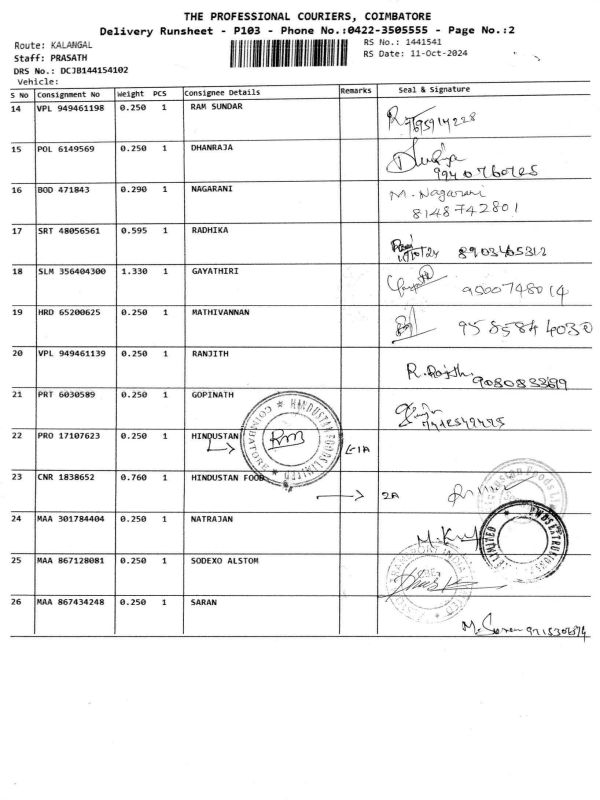 THE PROFESSIONAL COURIERS, COIMBATORE
Delivery Runsheet - P103 - Phone No.:0422-3505555 - Page No.:2
Route: KALANGAL
RS No.: 1441541
Staff: PRASATH
RS Date: 11-Oct-2024
DRS No.: DCJB144154102
Vehicle:
S No Consignment No Weight PCS Consignee Details Remarks Seal & Signature
14 VPL 949461198 0.250 1 RAM SUNDAR
15 POL 6149569 0.250 1 DHANRAJA
16 BOD 471843 0.290 1 NAGARANI M. Nagarani
8148742801
17 SRT 48056561 0.595 1 RADHIKA 8903405312
18 SLM 356404300 1.330 1 GAYATHIRI 9500748014
19 HRD 65200625 0.250 1 MATHIVANNAN 9585844030
20 VPL 949461139 0.250 1 RANJITH
21 PRT 6030589 0.250 1 GOPINATH
22 PRO 17107623 0.250 1 HINDUSTAN 1A
HINDUSTAN FOODS LIMITED * COIMBATORE *
23 CNR 1838652 0.760 1 HINDUSTAN FOOD 2A
24 MAA 301784404 0.250 1 NATRAJAN
25 MAA 867128081 0.250 1 SODEXO ALSTOM
26 MAA 867434248 0.250 1 SARAN